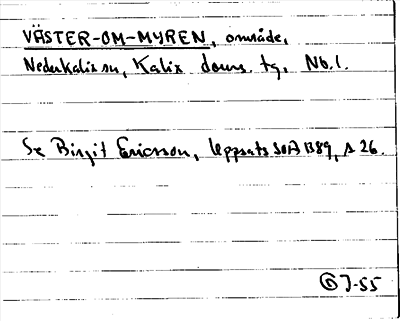 VÄSTER-OM-MYREN, område,
Nederkalix sn, Kalix doms. tg, Nb. l.
Se Birgit Ericsson, Uppsats SOA 1389, s 26.
J-55